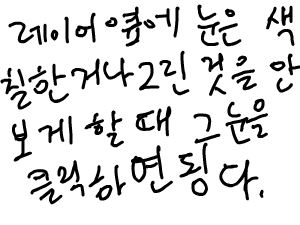 레이어 옆에 눈은 색
칠한거나 그린 것을 안
보게 할 때 그 눈을
클릭하면 됭다.